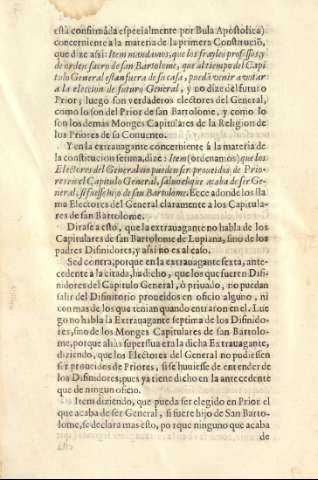 està confirmada especialmente por Bula Apostolica)
concerniente a la materia de la primera Constituciō,
que dize assi: Item mandamos, que los frayles professos, y
de orden sacro de san Bartolome, que al tiempo del Capi
tulo General estan fuera de su casa, puedā venir a votar
a la eleccion de futuro General, y no dize del futuro
Prior; luego son verdaderos electores del General,
como lo son del Prior de san Bartolome, y como lo
son los demas Monges Capitulares de la Religion de
los Priores de su Conuento.
Y en la extrauagante concerniente à la materia de
la constitucion setima, dize: Item (ordenamos) que los
Electores del General no pueden ser proueidos de Prio-
res en el Capitulo General, saluo el que acaba de ser Ge-
neral, si fuesse hijo de san Bartolome. Ecce adonde los lla
ma Electores del General claramente a los Capitula-
res de san Bartolome.
Dirase a esto, que la extrauagante no habla de los
Capitulares de san Bartolome de Lupiana, sino de los
padres Difinidores, y assi no es al caso.
Sed contra, porque en la extrauagante sexta, ante-
cedente à la citada, ha dicho, que los que fueren Difi-
nidores del Capitulo General, ò priuado, no puedan
salir del Difinitorio proueidos en oficio alguno, ni
con mas de los que tenian quando entraron en el. Lue
go no habla la Extrauagante septima de los Difinido-
res, sino de los Monges Capitulares de san Bartolo-
me, porque aliàs superflua era la dicha Extrauagante,
diziendo, que los Electores del General no pudiessen
ser proueidos de Priores, si se huuiesse de entender de
los Difinidores; pues ya tiene dicho en la antecedente
que de ningun oficio.
Item diziendo, que pueda ser elegido en Prior el
que acaba de ser General, si fuere hijo de San Barto-
lome, se declara mas esto, porque ninguno que acaba
de